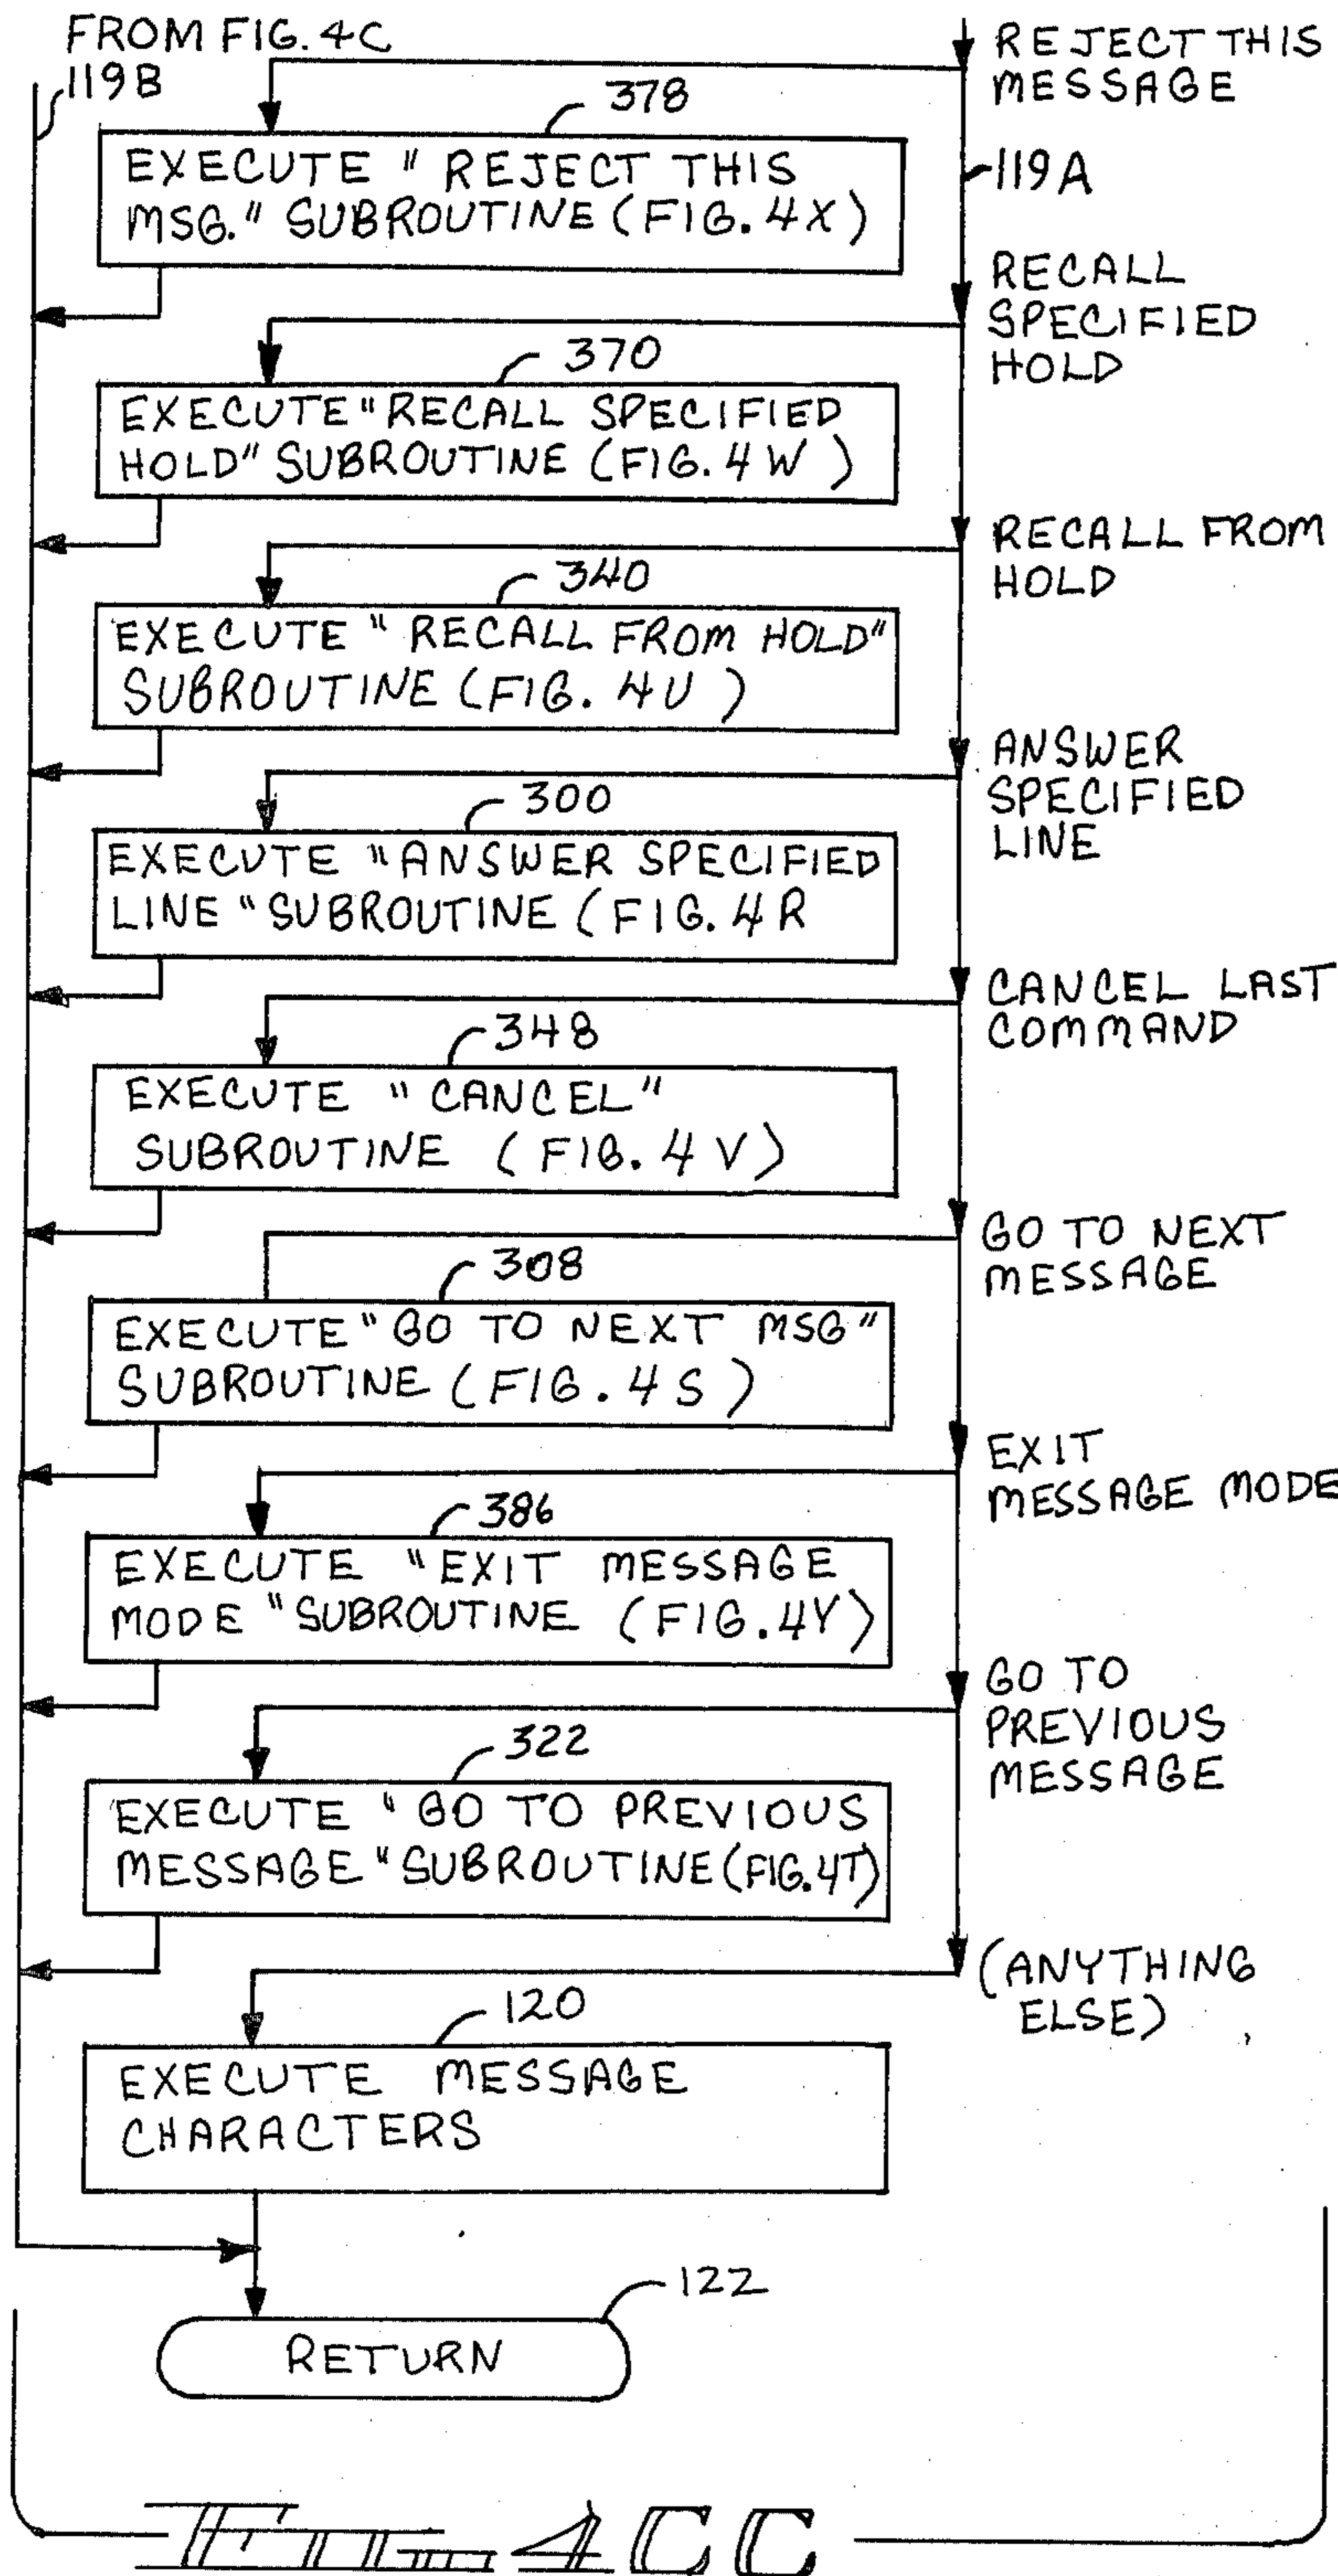 FROM FIG. 4C
119B
REJECT THIS
MESSAGE
378
119A
EXECUTE "REJECT THIS
MSG." SUBROUTINE (FIG. 4X)
RECALL
SPECIFIED
HOLD
370
EXECUTE "RECALL SPECIFIED
HOLD" SUBROUTINE (FIG. 4W)
RECALL FROM
HOLD
340
EXECUTE "RECALL FROM HOLD"
SUBROUTINE (FIG. 4U)
ANSWER
SPECIFIED
LINE
300
EXECUTE "ANSWER SPECIFIED
LINE "SUBROUTINE (FIG. 4R
CANCEL LAST
COMMAND
348
EXECUTE "CANCEL"
SUBROUTINE (FIG. 4V)
GO TO NEXT
MESSAGE
308
EXECUTE "GO TO NEXT MSG"
SUBROUTINE (FIG. 4S)
EXIT
MESSAGE MODE
386
EXECUTE "EXIT MESSAGE
MODE "SUBROUTINE (FIG. 4Y)
GO TO
PREVIOUS
MESSAGE
322
EXECUTE "GO TO PREVIOUS
MESSAGE "SUBROUTINE (FIG. 4T)
(ANYTHING
ELSE)
120
EXECUTE MESSAGE
CHARACTERS
122
RETURN
FIG. 4CC